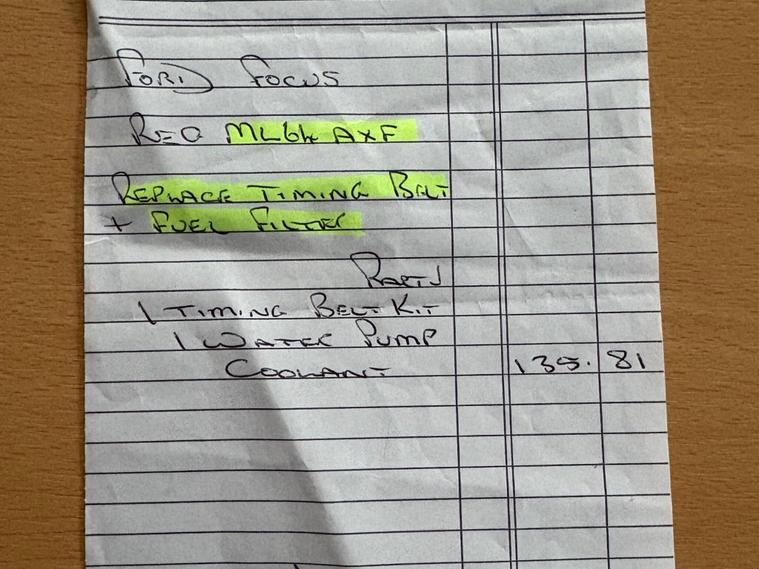 FORD FOCUS
REG ML64 AXF
REPLACE TIMING BELT
+ FUEL FILTER
PARTS
1 TIMING BELT KIT
1 WATER PUMP
COOLANT 135.81